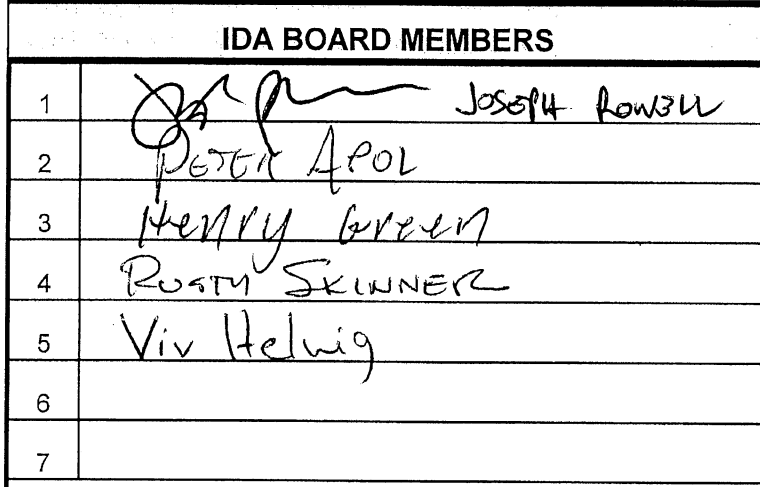 IDA BOARD MEMBERS
1 JOSEPH ROWELL
2 PETER APOL
3 Henry Green
4 RUSTY SKINNER
5 Viv Helwig
6
7